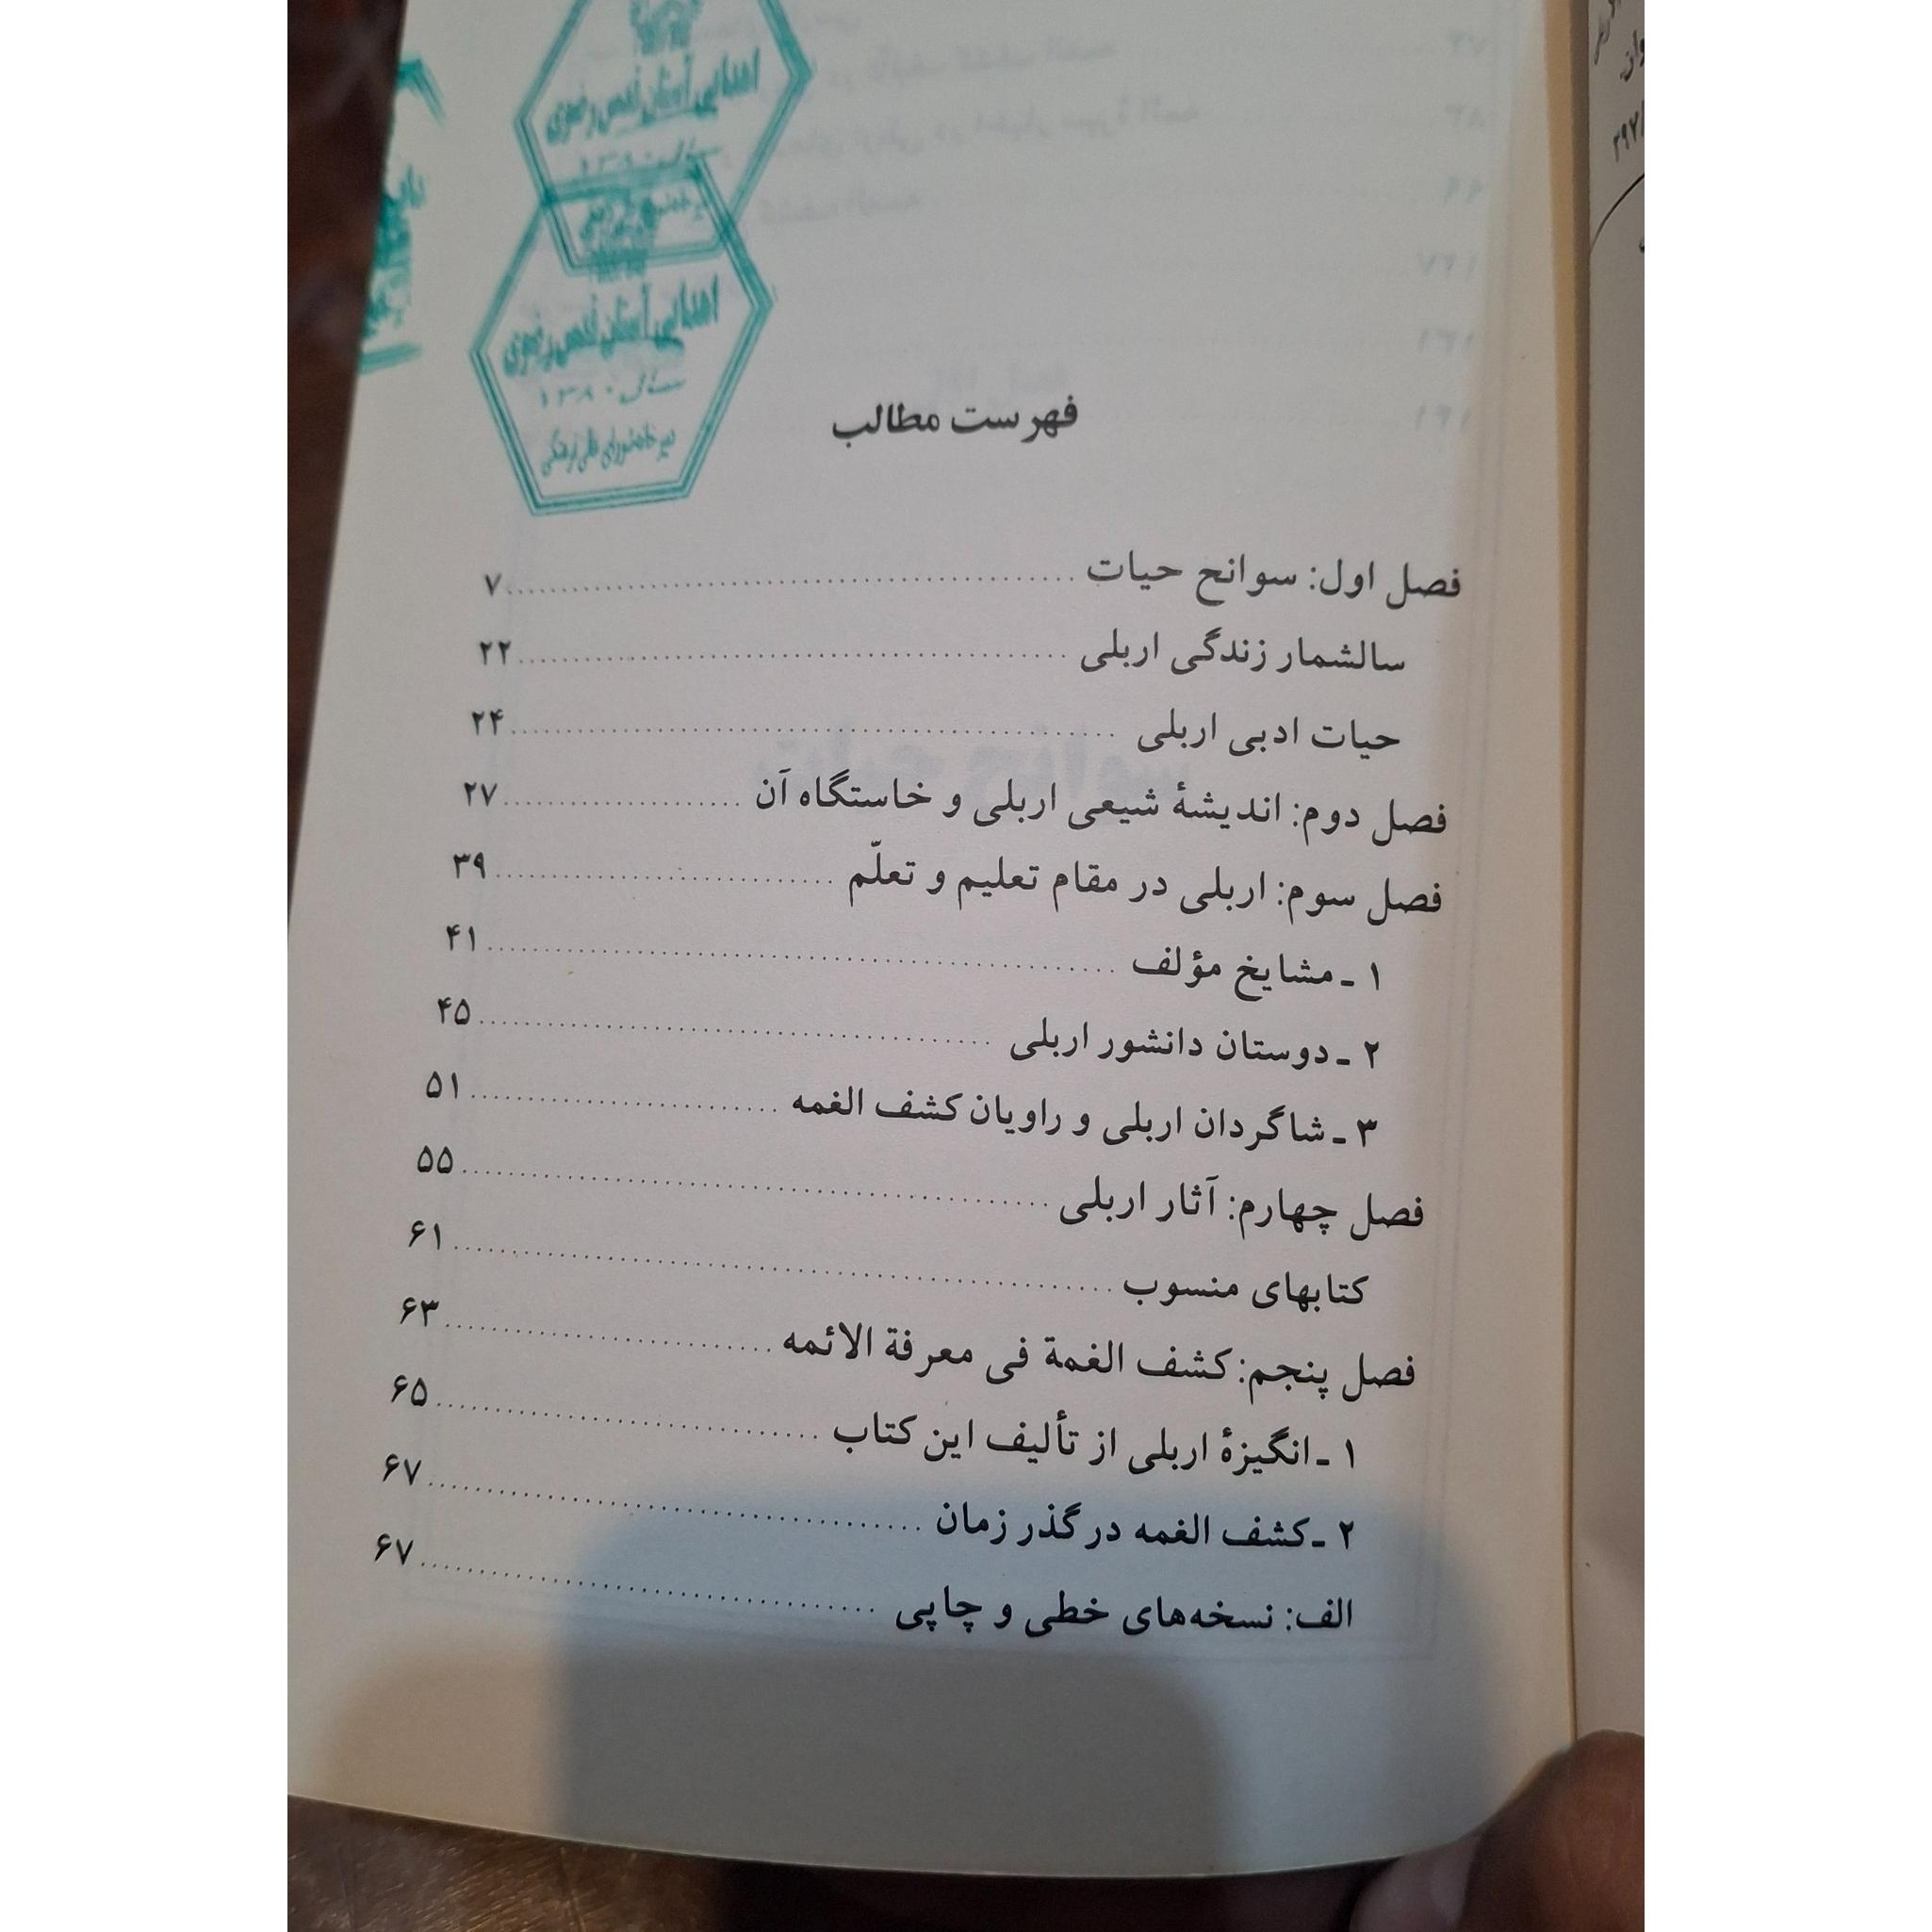 اهدائی آستان قدس رضوی
سال ۱۳۸۰
اهدائی آستان قدس رضوی
سال ۱۳۸۰
دبیرخانه شورای عالی فرهنگی
فهرست مطالب
فصل اول: سوانح حیات ........ ۷
سالشمار زندگی اربلی ........ ۲۲
حیات ادبی اربلی ........ ۲۴
فصل دوم: اندیشهٔ شیعی اربلی و خاستگاه آن ........ ۲۷
فصل سوم: اربلی در مقام تعلیم و تعلّم ........ ۳۹
۱ ـ مشایخ مؤلف ........ ۴۱
۲ ـ دوستان دانشور اربلی ........ ۴۵
۳ ـ شاگردان اربلی و راویان کشف الغمه ........ ۵۱
فصل چهارم: آثار اربلی ........ ۵۵
کتابهای منسوب ........ ۶۱
فصل پنجم: کشف الغمة فی معرفة الائمه ........ ۶۳
۱ ـ انگیزهٔ اربلی از تألیف این کتاب ........ ۶۵
۲ ـ کشف الغمه در گذر زمان ........ ۶۷
الف: نسخه‌های خطی و چاپی ........ ۶۷